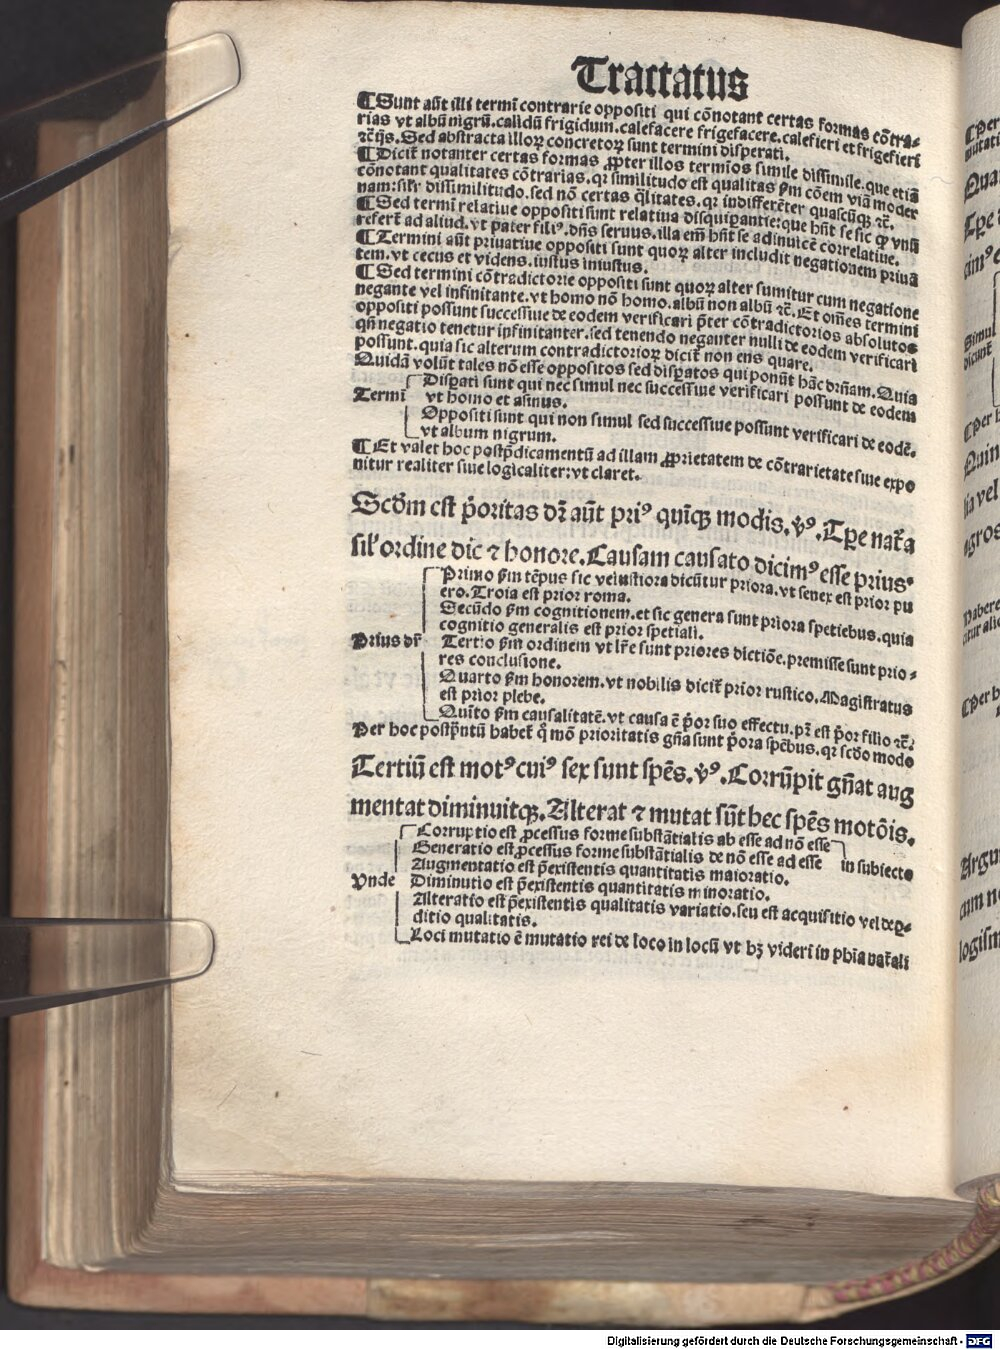 Tractatus
¶Sunt aūt illi termī contrarie oppositi qui cōnotant certas formas cōtra⸗
rias vt albū nigrū.calidū frigidum.calefacere frigefacere.calefieri et frigefieri
⁊c̄ijs.Sed abstracta illoꝝ concretoꝝ sunt termini disperati.
¶Dicit̄ notanter certas formas ꝓpter illos termīos simile dissimile.que etiā
cōnotant qualitates cōtrarias.qꝛ similitudo est qualitas ẜm cōem viā moder
nam:sil'r dissimilitudo.sed nō certas q̄litates.qꝛ indifferēter quascūqꝫ ⁊c̄.
¶Sed termī relatiue oppositi sunt relatiua disquipantie:que hn̄t se sic ꝙ vnū
refert̄ ad aliud.vt pater filiꝰ.dn̄s seruus.illa em̄ hn̄t se adinuicē correlatiue.
¶Termini aūt priuatiue oppositi sunt quoꝝ alter includit negationem priuā
tem.vt cecus et videns.iustus iniustus.
¶Sed termini cōtradictorie oppositi sunt quoꝝ alter sumitur cum negatione
negante vel infinitante.vt homo nō homo.albū non albū ⁊c̄.Et oīes termini
oppositi possunt successiue de eodem verificari p̄ter cōtradictorios absolutos
qn̄ negatio tenetur infinitanter.sed tenendo neganter nulli de eodem verificari
possunt.quia sic alterum contradictorioꝝ dicit̄ non ens quare.
Quidā volūt tales nō esse oppositos sed disp̄atos qui ponūt hāc dr̄nam.Quia
Disp̄ati sunt qui nec simul nec successiue verificari possunt de eodem
Termī vt homo et asinus.
Oppositi sunt qui non simul sed successiue possunt verificari de eodē.
vt album nigrum.
¶Et valet hoc postp̄dicamentū ad illam ꝓprietatem de cōtrarietate siue expo
nitur realiter siue logicaliter:vt claret.
Scd̄m est p̄oritas dr̄ aūt priꝰ quīqꝫ modis.v̄ꝰ.Tp̄e nat̄a
sil' ordine dic ⁊ honore.Causam causato dicimꝰ esse prius.
Primo ẜm tēpus sic vetustiora dicūtur priora.vt senex est prior pu
ero.Troia est prior roma.
Secūdo ẜm cognitionem.et sic genera sunt priora spetiebus.quia
cognitio generalis est prior spetiali.
Prius dr̄ Tertio ẜm ordinem vt lr̄e sunt priores dictiōe.premisse sunt prio⸗
res conclusione.
Quarto ẜm honorem.vt nobilis dicit̄ prior rustico.Magistratus
est prior plebe.
Quīto ẜm causalitatē.vt causa ē p̄or suo effectu.pr̄ est p̄or filio ⁊c̄.
Per hoc postp̄ntū habet̄ q̊ mō prioritatis gn̄a sunt p̄ora sp̄ebus.qꝛ scd̄o modo
Tertiū est motꝰ cuiꝰ sex sunt sp̄es.v̄ꝰ.Corrūpit gn̄at aug
mentat diminuitqꝫ.Alterat ⁊ mutat sūt hec sp̄es motōis.
Corruptio est ꝓcessus forme substātialis ab esse ad nō esse
Generatio est ꝓcessus forme substātialis de nō esse ad esse in subiecto
Augmentatio est p̄existentis quantitatis maioratio.
Vnde Diminutio est p̄existentis quantitatis minoratio.
Alteratio est p̄existentis qualitatis variatio.seu est acquisitio vel deꝑ⸗
ditio qualitatis.
Loci mutatio ē mutatio rei de loco in locū vt hꝫ videri in ph̄ia nat̄ali
Digitalisierung gefördert durch die Deutsche Forschungsgemeinschaft - DFG